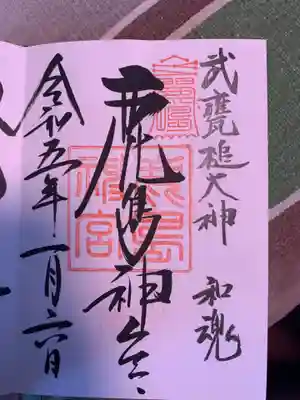 武甕槌大神 和魂
鹿島神宮
鹿島
神宮
令和五年一月六日